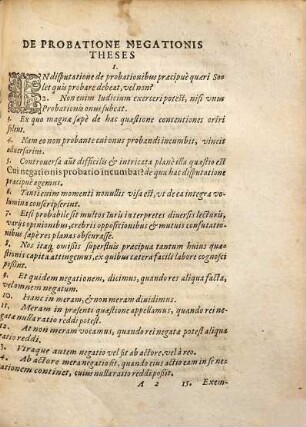 DE PROBATIONE NEGATIONIS
THESES
1.
IN disputatione de probationibus præcipuè quæri So-
let quis probare debeat, vel non?
2. Non enim Iudicium exerceri potest, nisi vnus
Probationis onus subeat.
3. Ex quo magna sæpè de hac quæstione contentiones oriri
solent.
4. Nam eo non probante cui onus probandi incumbit, vincit
aduersarius.
5. Controuersa aūt difficilis & intricata planè illa quæstio est
Cui negationis probatio incumbat? de qua hac disputatione
præcipuè agemus.
6. Tanti enim momenti nonnullis visa est, vt de ea integra vo-
lumina conscripserint.
7. Etsi probabile sit multos Iuris interpretes diuersis lecturis,
varijs opinionibus, crebris oppositionibus & mutuis confutatio-
nibus sæpè res planas obscurasse.
8. Nos itaq; omissis superfluis præcipua tantum huius quæ-
stionis capita attingemus, ex quibus cætera facili labore cognosci
possint.
9. Et quidem negationem, dicimus, quando res aliqua facta,
vel omninem negatum.
10. Hanc in meram, & non meram diuidimus.
11. Meram in præsenti quæstione appellamus, quando rei ne-
gatæ nulla ratio reddi potest.
12. At non meram vocamus, quando rei negata potest aliqua
ratio reddi.
13. Vtraque autem negatio vel fit ab actore, vel à reo.
14. Ab actore mera negatio fit, quando eius actio eam in se ne-
gationem continet, cuius nulla ratio reddi possit.
A 2 15. Exem-